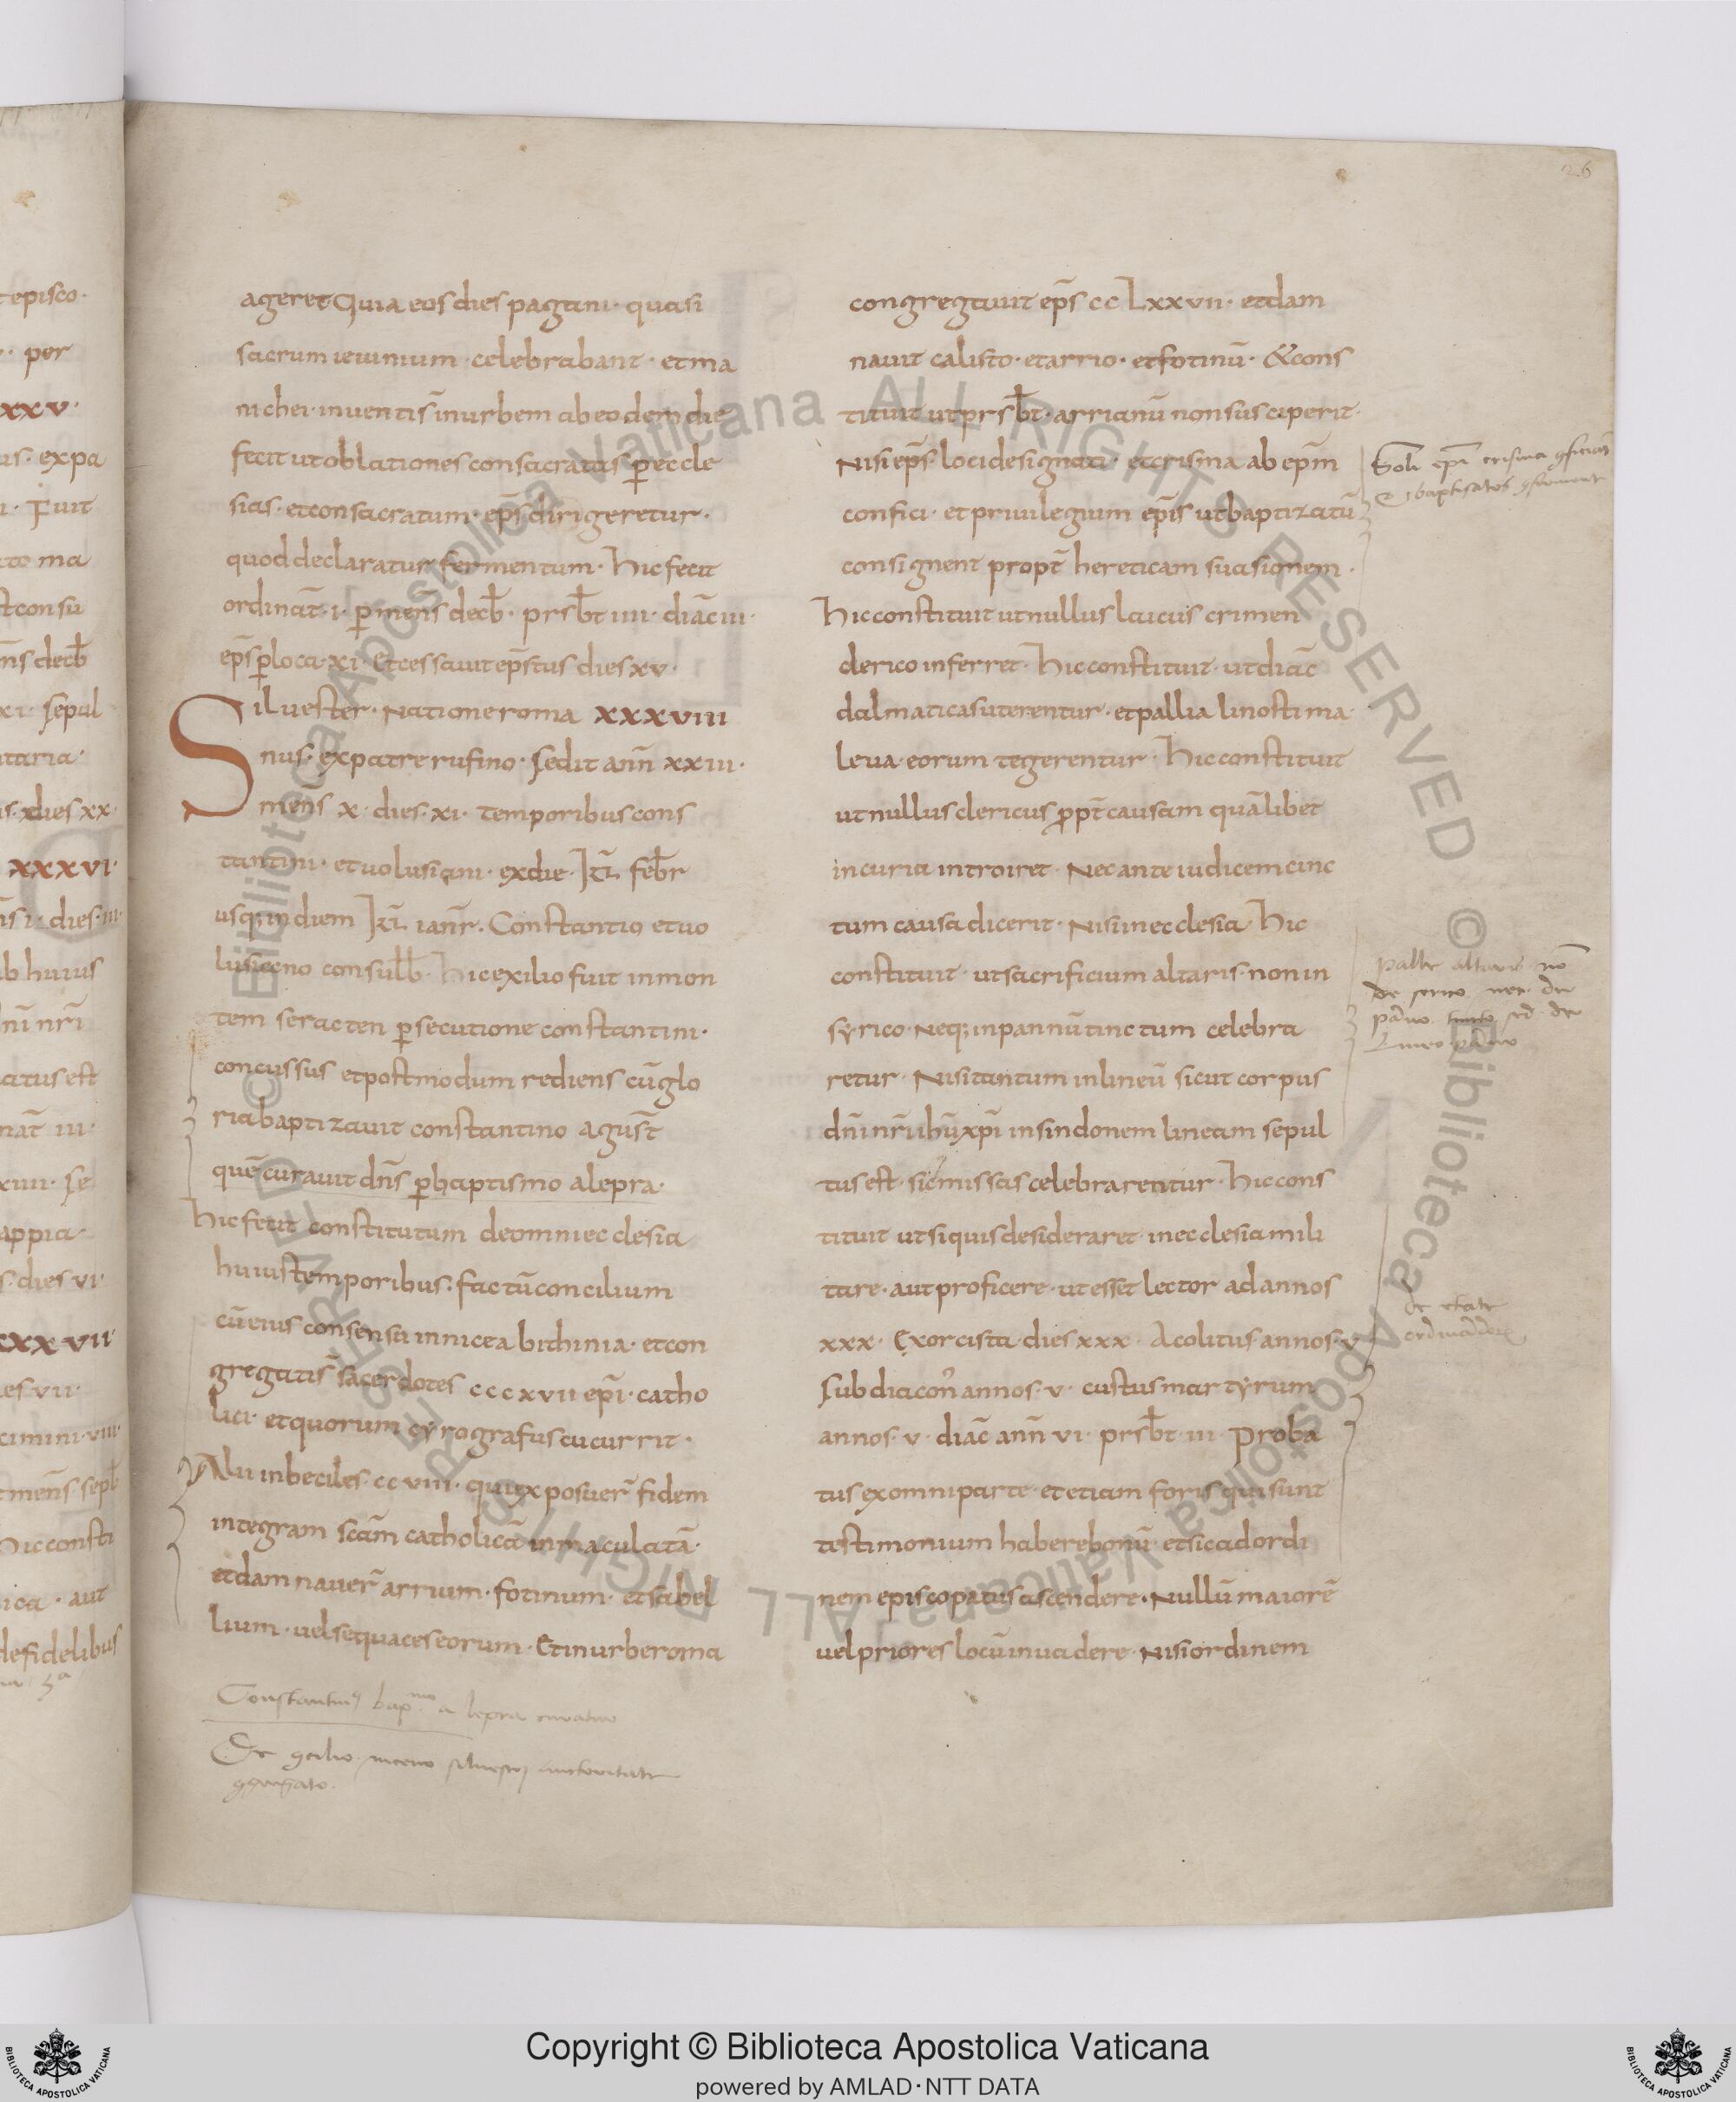 26
ageret Quia eos dies pagani· quasi
sacrum ieiunium· celebrabant· et ma
nichei· inuentis̄ inurbem ab eodem die
fecit ut oblationes consacratas p̲ eccle
sias· et consacratum· ep̄s dirigeretur·
quod declaratur fermentum· Hic fecit
ordinat̄· i· p̲ mens̄ decb̄· prsb̄t iiii· diac̄ iii·
ep̄s p̲ loca· xi· Et cessauit ep̄stus dies xv·
Siluester· Natione roma xxxviii
nus· ex patre rufino· Sedit ann̄ xxiii·
mens̄ x· dies· xi· temporibus cons
tantini· et uolusiani· ex die· kl̄ feb̄r
usq; in diem kl̄ ian̄r. Constantio et uo
lusiano consulb̄· Hic exilio fuit in mon
tem seracten p̲secutione constantini·
concussus et postmodum rediens cū glo
ria baptizauit constantino agust̄
quē curauit dn̄s p̲ baptismo a lepra·
Hic fecit constitutum de omni ecclesia
huius temporibus· factū concilium
cū eius consensu in nicea bithinia· et con
gregatis̄ sacerdotes cccxvii ep̄i· catho
lici· et quorum cyrografus cucurrit·
Alii inbeciles· ccviii· qui exposuer̄ fidem
integram scām catholicā inmaculatā·
et damnauer̄ arrium· fotinum· et sabel
lium· uel sequaces eorum· Et in urbe roma
Constantinꝰ bapᵐᵒ a lepra curatur
De ꝯcilio niceno siluestri auctoritate
ꝯgregato.
congregauit ep̄s cc Lxxvii· et dam
nauit calisto· et arrio· et fotinū· & cons
tituit ut prsb̄t· arrianū non susciperit·
Nisi ep̄s· loci designati· et crisma ab ep̄m
confici· et priuilegium ep̄is ut baptizatū
consignent propt̄ hereticam suasionem·
Hic constituit ut nullus laicus crimen
clerico inferret· Hic constituit· ut diac̄
dalmaticas uterentur· et pallia linostima·
leua· eorum tegerentur· Hic constituit
ut nullus clericus ꝓpt̄ causam quālibet
in curia introiret· Nec ante iudicem cinc
tum causa dicerit· Nisi in ecclesia· Hic
constituit· ut sacrificium altaris· non in
syrico· Neq; in pannū tinctum celebra
retur· Nisi tantum in lineū sicut corpus
dn̄i nr̄i ihū xp̄i in sindonem lineam sepul
tus est· sic missas celebrarentur· Hic cons
tituit ut si quis desideraret· in ecclesia mili
tare· aut proficere· ut esset lector ad annos
xxx· Exorcista· dies xxx· Acolitus· annos· v
Subdiacon̄ annos· v· custus martyrum
annos· v· diac̄ ann̄ vi· prsb̄t· iii· Proba
tus ex omni parte· et etiam foris qui sunt
testimonium habere bonū· et sic ad ordi
nem episcopatus ascendere· Nullū maiorē
uel priores locū inuadere· Nisi ordinem
Soli ep̄i crisma ꝯficiant
& baptisatos ꝯfirment
palle altaris nō
de serico nec de
pāno tincto sed de
lineo pāno
de etate
Copyright © Biblioteca Apostolica Vaticana
powered by AMLAD·NTT DATA